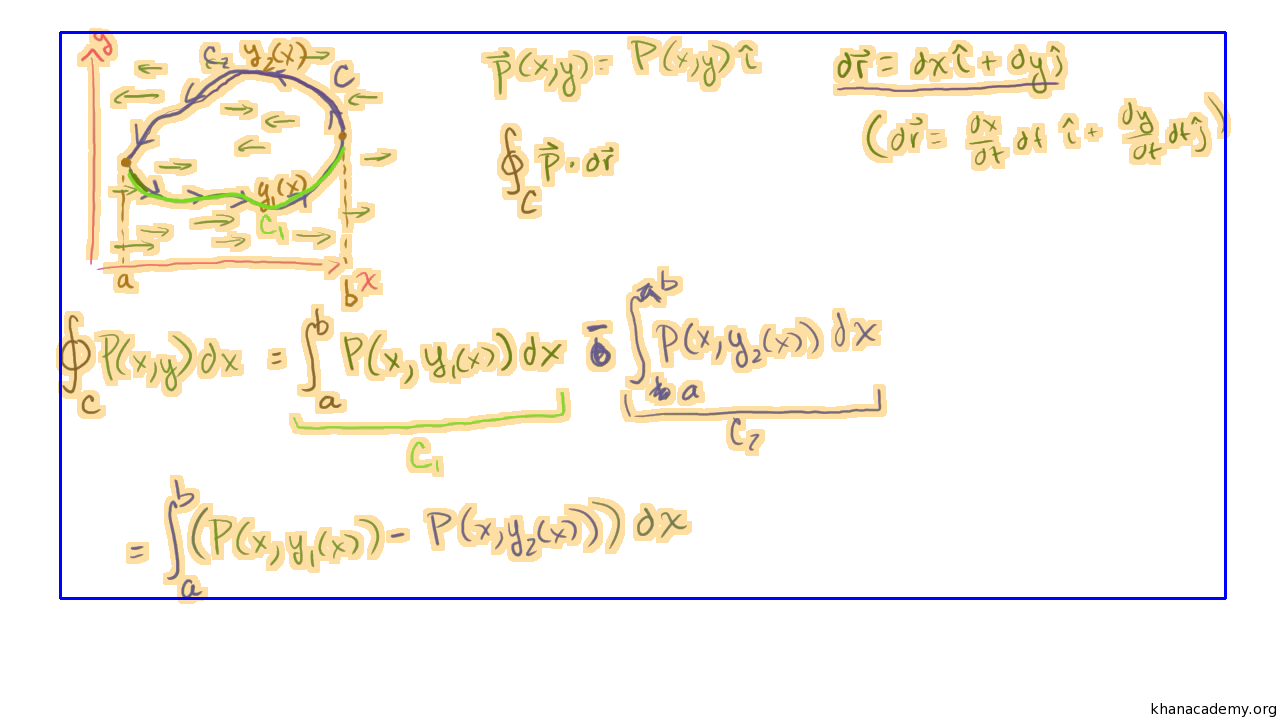 y
C₂ y₂(x)
C
y₁(x)
C₁
a
b
x
P⃗(x,y) = P(x,y) î
dr⃗ = dx î + dy ĵ
(dr⃗ = dx/dt dt î + dy/dt dt ĵ)
∮_C P⃗ · dr⃗
∮_C P(x,y) dx = ∫_a^b P(x, y₁(x)) dx − ∫_a^b P(x, y₂(x)) dx
C₁
C₂
= ∫_a^b (P(x, y₁(x)) − P(x, y₂(x))) dx
khanacademy.org